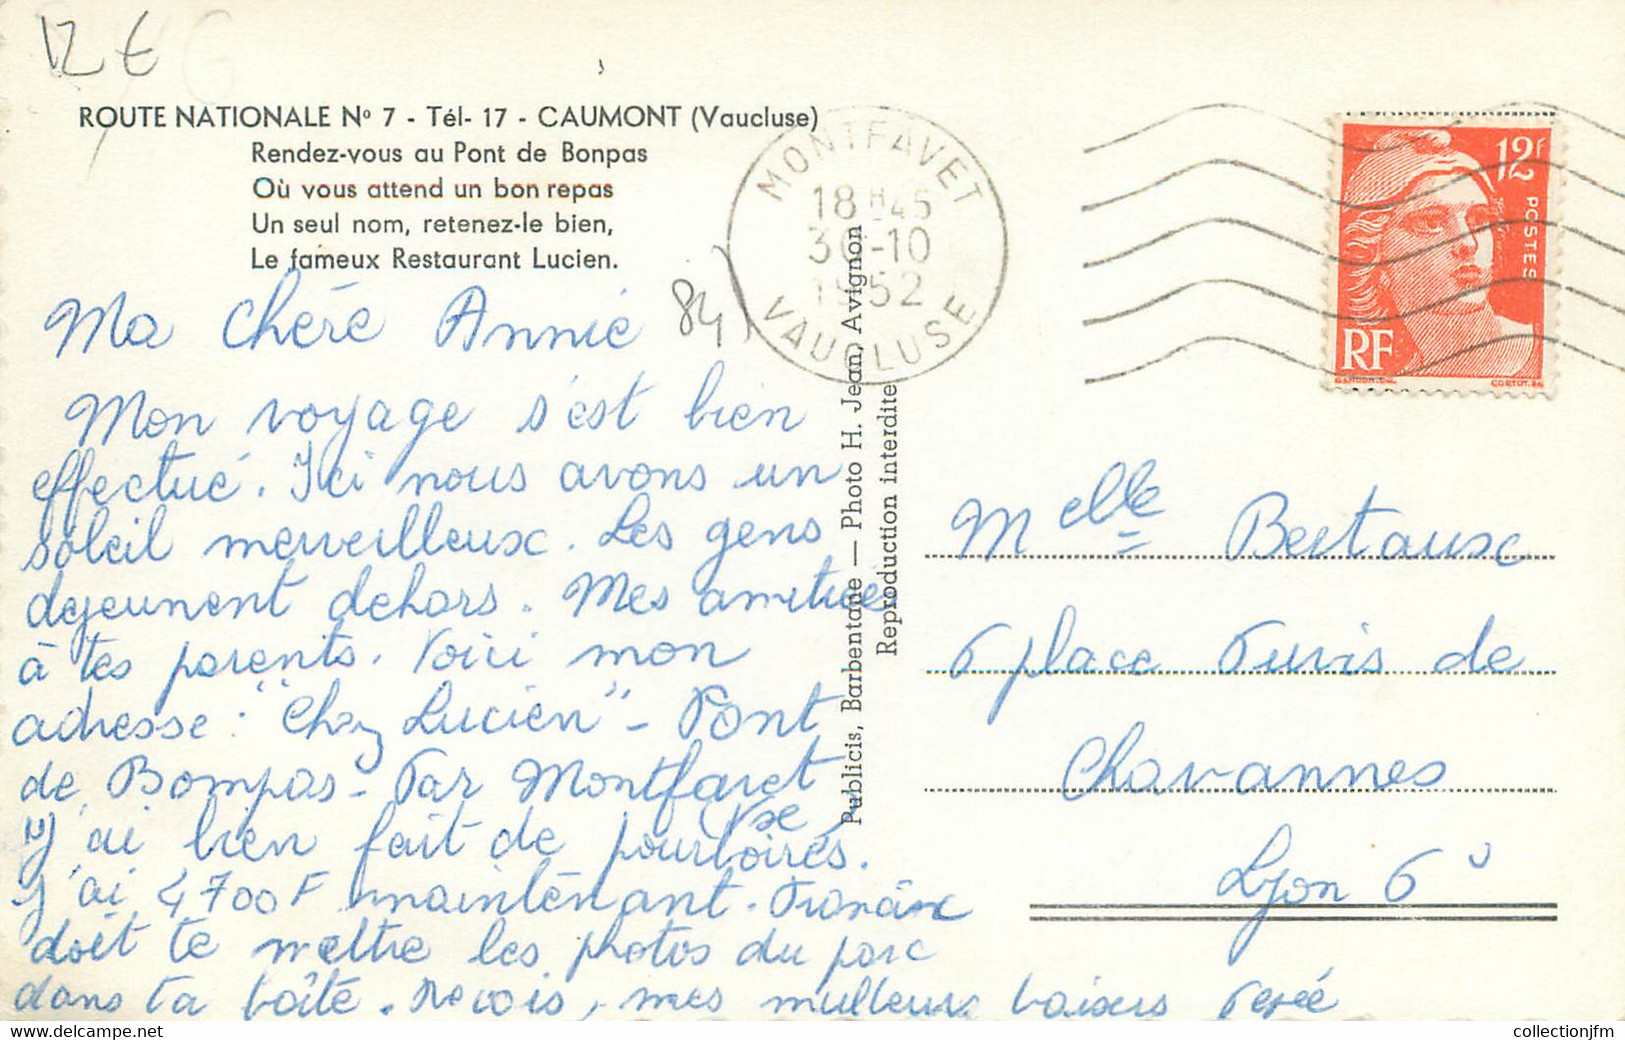 12 €
ROUTE NATIONALE Nº 7 - Tél- 17 - CAUMONT (Vaucluse)
Rendez-vous au Pont de Bonpas
Où vous attend un bon repas
Un seul nom, retenez-le bien,
Le fameux Restaurant Lucien.
84)
MONTFAVET
18 H 45
30-10
1952
VAUCLUSE
12F
POSTES
RF
GANDON.DEL.
CORTOT.SC.
Ma chère Annie
Mon voyage s'est bien
effectué. Ici nous avons un
soleil merveilleux. Les gens
dejeunent dehors. Mes amitiées
à tes parents. Voici mon
adresse : "Chez Lucien" - Pont
de Bompas - Par Montfavet
Vse
J'ai bien fait de pourboires.
J'ai 4700F maintenant.
doit te mettre les photos du parc
dans ta boîte. Reçois, mes meilleurs baisers
Publicis, Barbentane — Photo H. Jean, Avignon
Reproduction interdite
Melle Bertaux
6 place Puvis de
Chavannes
Lyon 6
collectionjfm